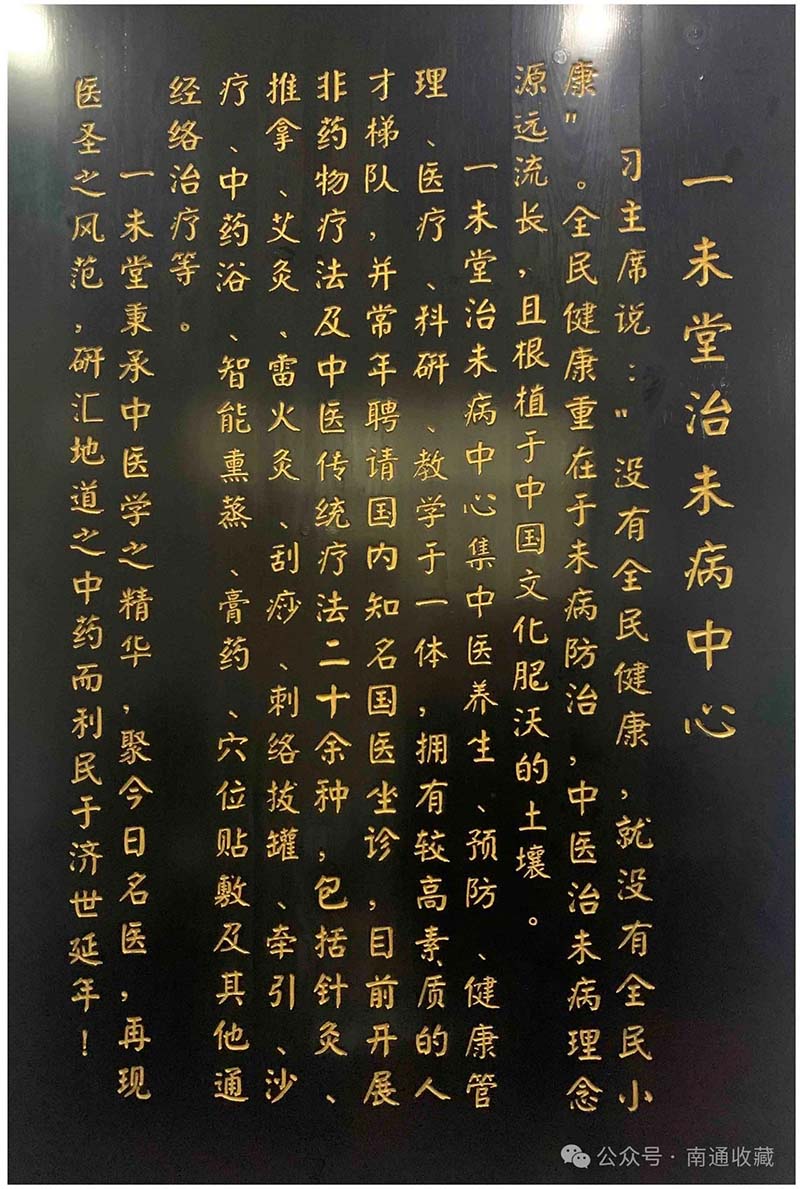 一未堂治未病中心
习主席说："没有全民健康,就没有全民小
康"。全民健康重在于未病防治,中医治未病理念
源远流长,且根植于中国文化肥沃的土壤。
一未堂治未病中心集中医养生、预防、健康管
理、医疗、科研、教学于一体,拥有较高素质的人
才梯队,并常年聘请国内知名国医坐诊,目前开展
非药物疗法及中医传统疗法二十余种,包括针灸、
推拿、艾灸、雷火灸、刮痧、刺络拔罐、牵引、沙
疗、中药浴、智能熏蒸、膏药、穴位贴敷及其他通
经络治疗等。
一未堂秉承中医学之精华,聚今日名医,再现
医圣之风范,研汇地道之中药而利民于济世延年!
公众号·南通收藏